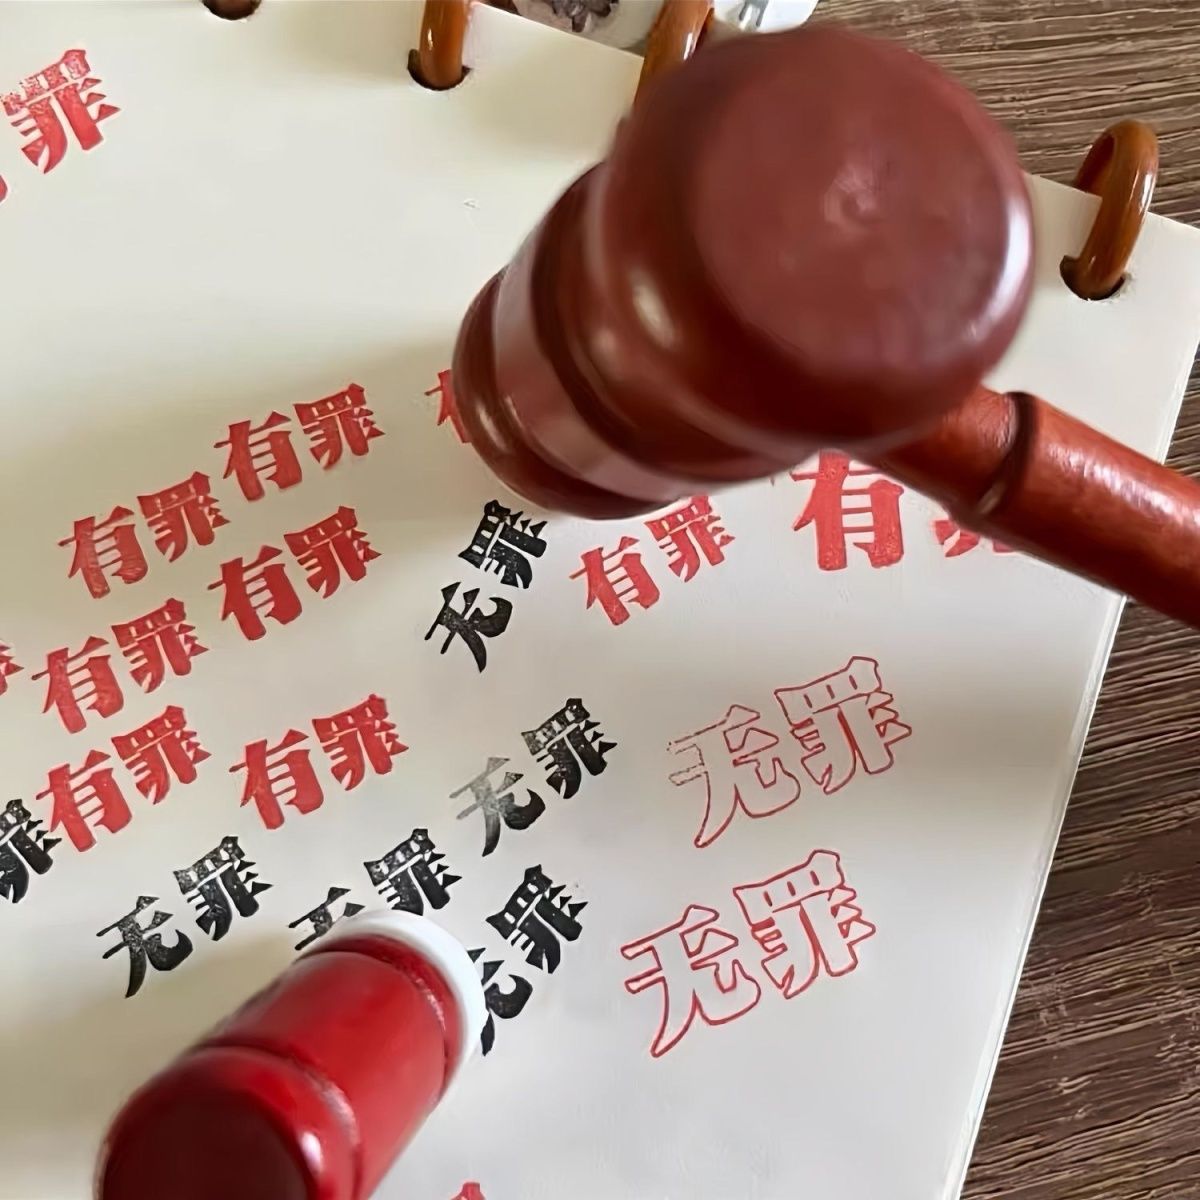 罪
有罪
有罪
有罪
有罪
有罪
有罪
有罪
有
无罪
有罪
无罪
无罪
无罪
罪
无罪
无罪
无罪
无罪